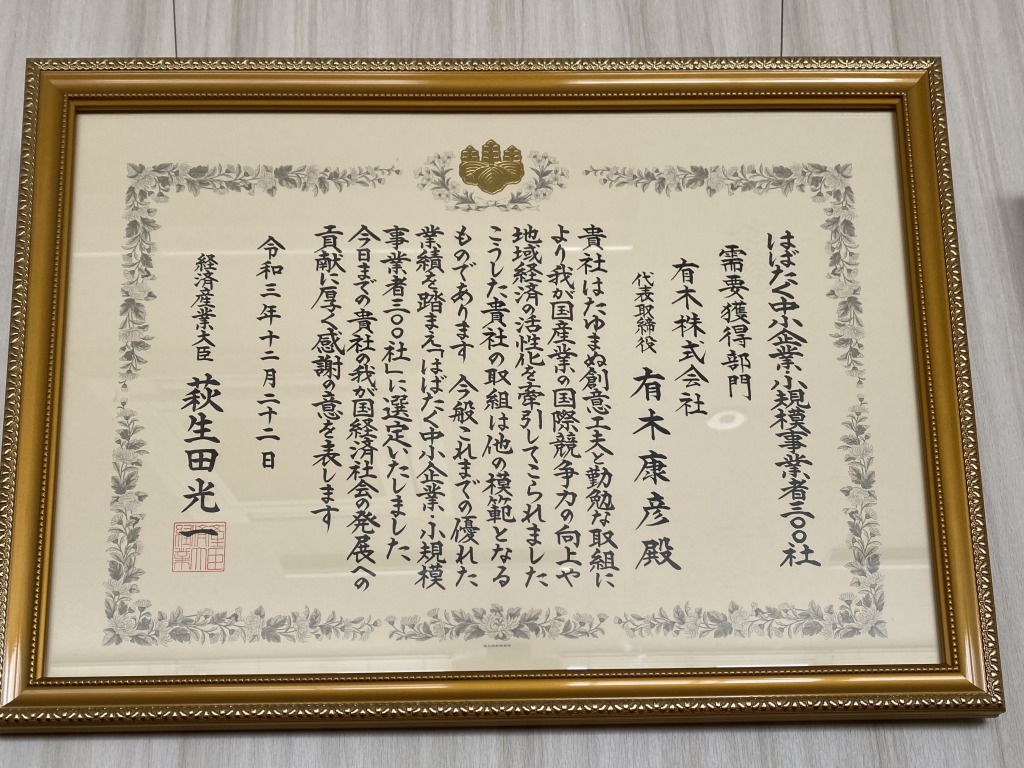 はばたく中小企業・小規模事業者三〇〇社
需要獲得部門
有木株式会社
代表取締役 有木康彦殿
貴社はたゆまぬ創意工夫と勤勉な取組に
より我が国産業の国際競争力の向上や
地域経済の活性化を牽引してこられました
こうした貴社の取組は他の模範となる
ものであります 今般これまでの優れた
業績を踏まえ「はばたく中小企業・小規模
事業者三〇〇社」に選定いたしました
今日までの貴社の我が国経済社会の発展への
貢献に厚く感謝の意を表します
令和三年十二月二十二日
経済産業大臣 萩生田光一